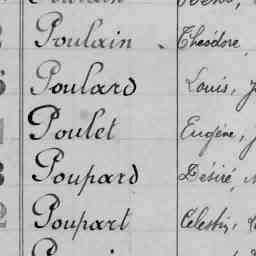 Poulain Théodore
Poulard Louis, J
Poulet Eugène, J
Poupard Désiré,
2 Poupart Célestin,